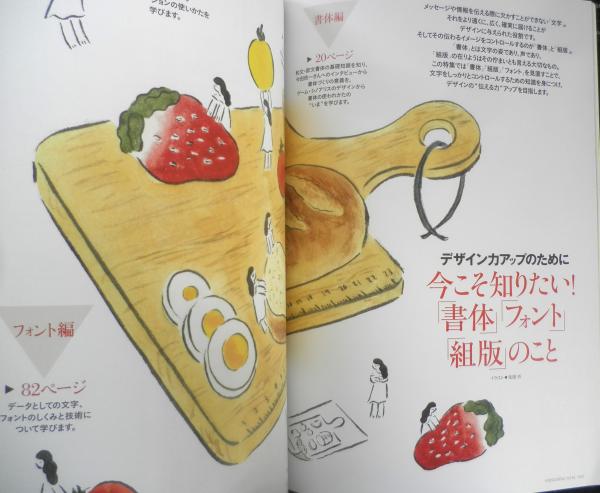 ションの使いかたを
学びます。
書体編
▶ 20ページ
和文・欧文書体の基礎知識を知り、
書体づくりの意義を、
ゲーム・シノアリスのデザインから
書体の使われかたの
“いま”を学びます。
メッセージや情報を伝える際に欠かすことができない「文字」。
それをより遠くに、広く、確実に届けることが
デザインに与えられた役割です。
そしてその伝わるイメージをコントロールするのが「書体」と「組版」。
「書体」とは文字の姿であり、声であり、
「組版」の在りようはその佇まいとも言える大切なもの。
この特集では「書体」「組版」「フォント」を見直すことで、
文字をしっかりとコントロールするための知識を身につけ、
デザインの“伝える力”アップを目指します。
デザイン力アップのために
今こそ知りたい!
「書体」「フォント」
「組版」のこと
フォント編
▶ 82ページ
データとしての文字、
フォントのしくみと技術に
ついて学びます。